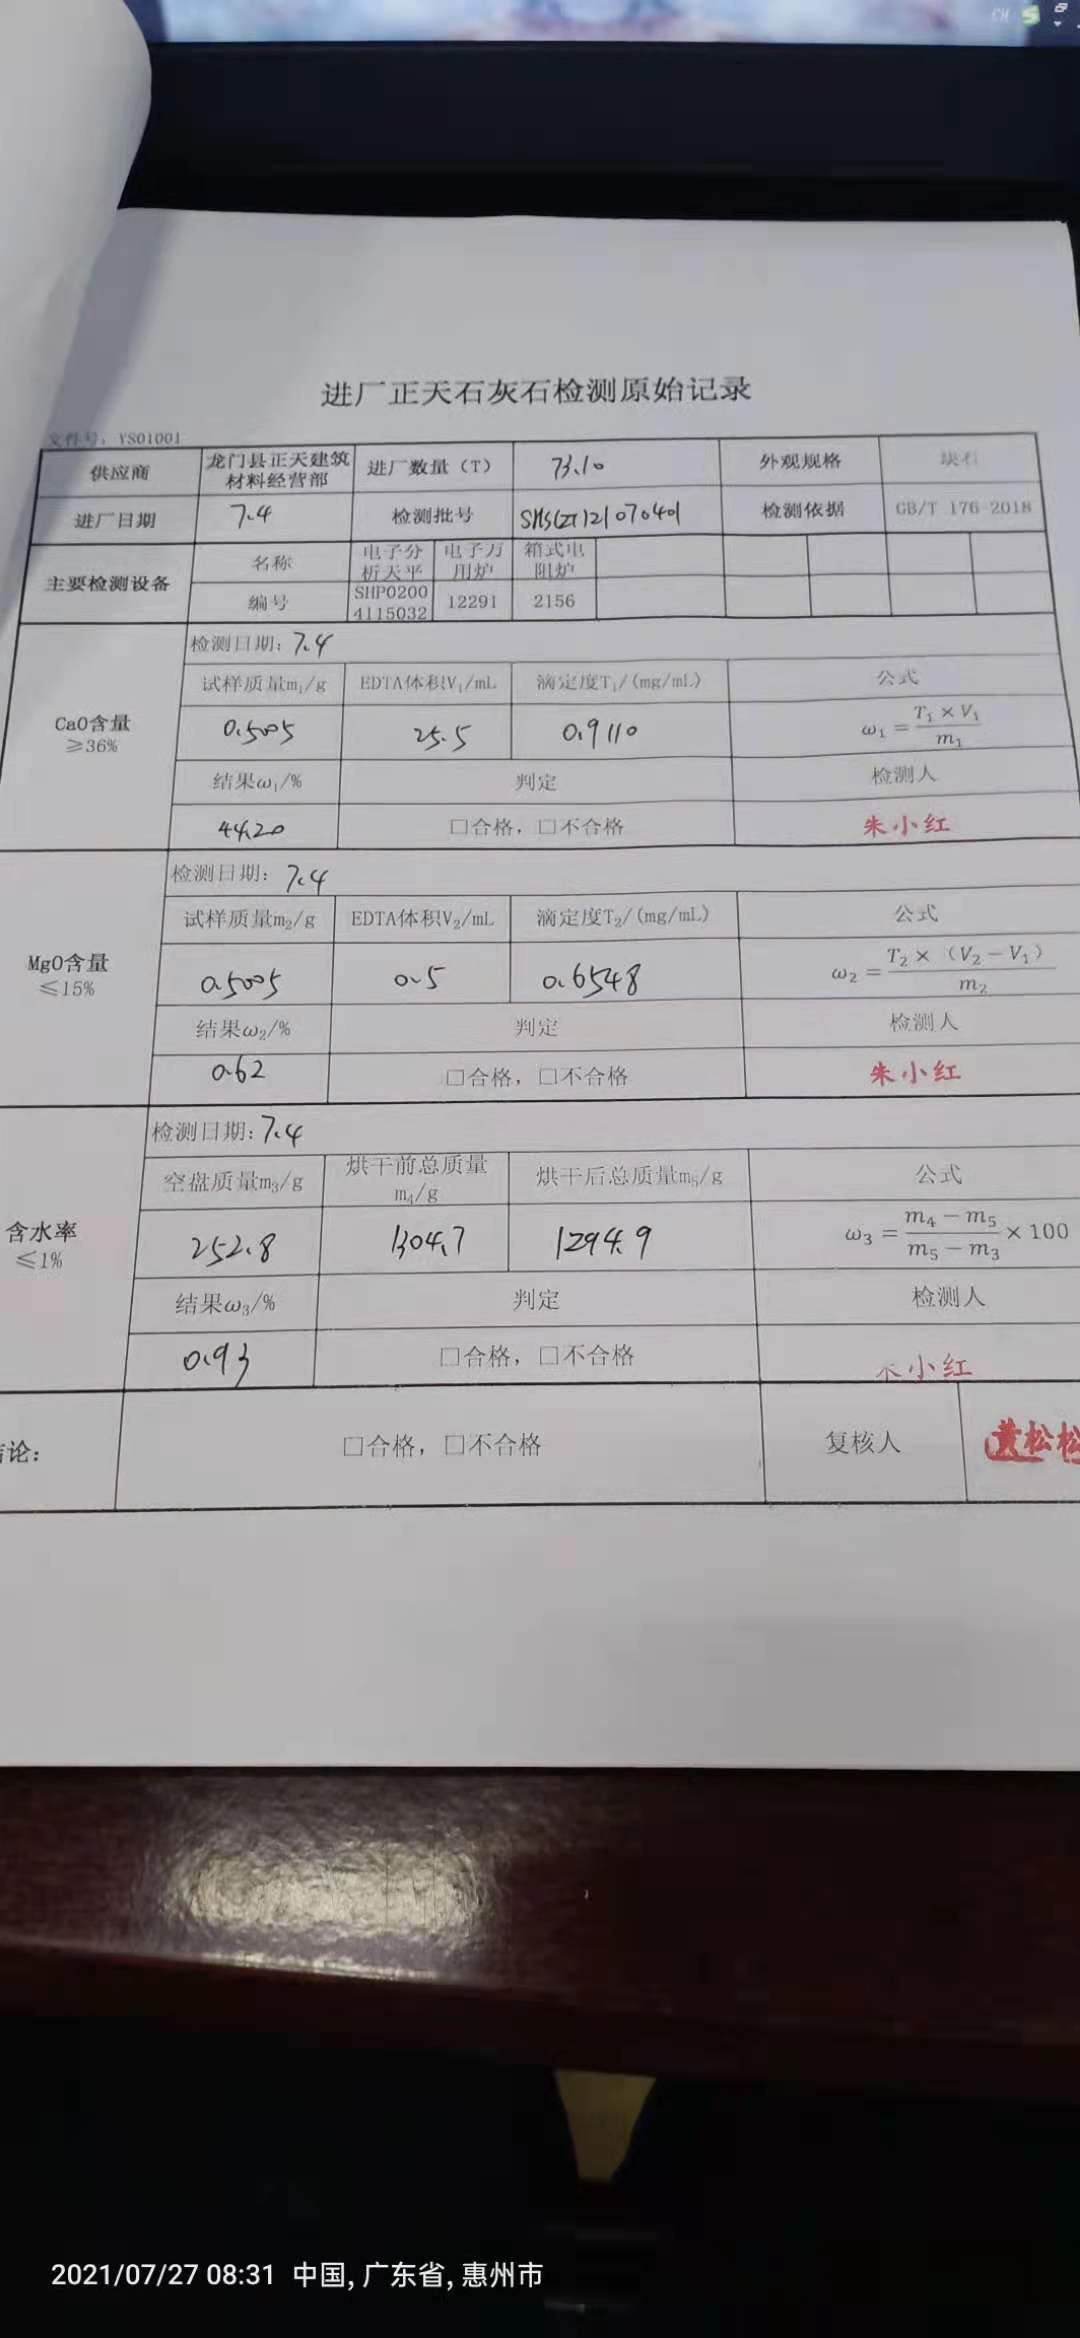 CH
进厂正天石灰石检测原始记录
文件号：YS01001
供应商 龙门县正天建筑材料经营部 进厂数量（T） 73.10 外观规格 块石
进厂日期 7.4 检测批号 检测依据 GB/T 176-2018
主要检测设备 名称 电子分析天平 电子万用炉 箱式电阻炉
编号 SHP02004115032 12291 2156
CaO含量 ≥36%
检测日期: 7.4
试样质量m₁/g EDTA体积V₁/mL 滴定度T₁/(mg/mL) 公式
0.5005 25.5 0.9110 ω₁ = T₁ × V₁ / m₁
结果ω₁/% 判定 检测人
44.20 □合格，□不合格 朱小红
MgO含量 ≤15%
检测日期: 7.4
试样质量m₂/g EDTA体积V₂/mL 滴定度T₂/(mg/mL) 公式
0.5005 0.5 0.6548 ω₂ = T₂ × （V₂ − V₁） / m₂
结果ω₂/% 判定 检测人
0.62 □合格，□不合格 朱小红
含水率 ≤1%
检测日期: 7.4
空盘质量m₃/g 烘干前总质量m₄/g 烘干后总质量m₅/g 公式
252.8 1304.7 1294.9 ω₃ = m₄ − m₅ / m₅ − m₃ × 100
结果ω₃/% 判定 检测人
0.93 □合格，□不合格 朱小红
论： □合格，□不合格 复核人 黄松松
2021/07/27 08:31 中国, 广东省, 惠州市